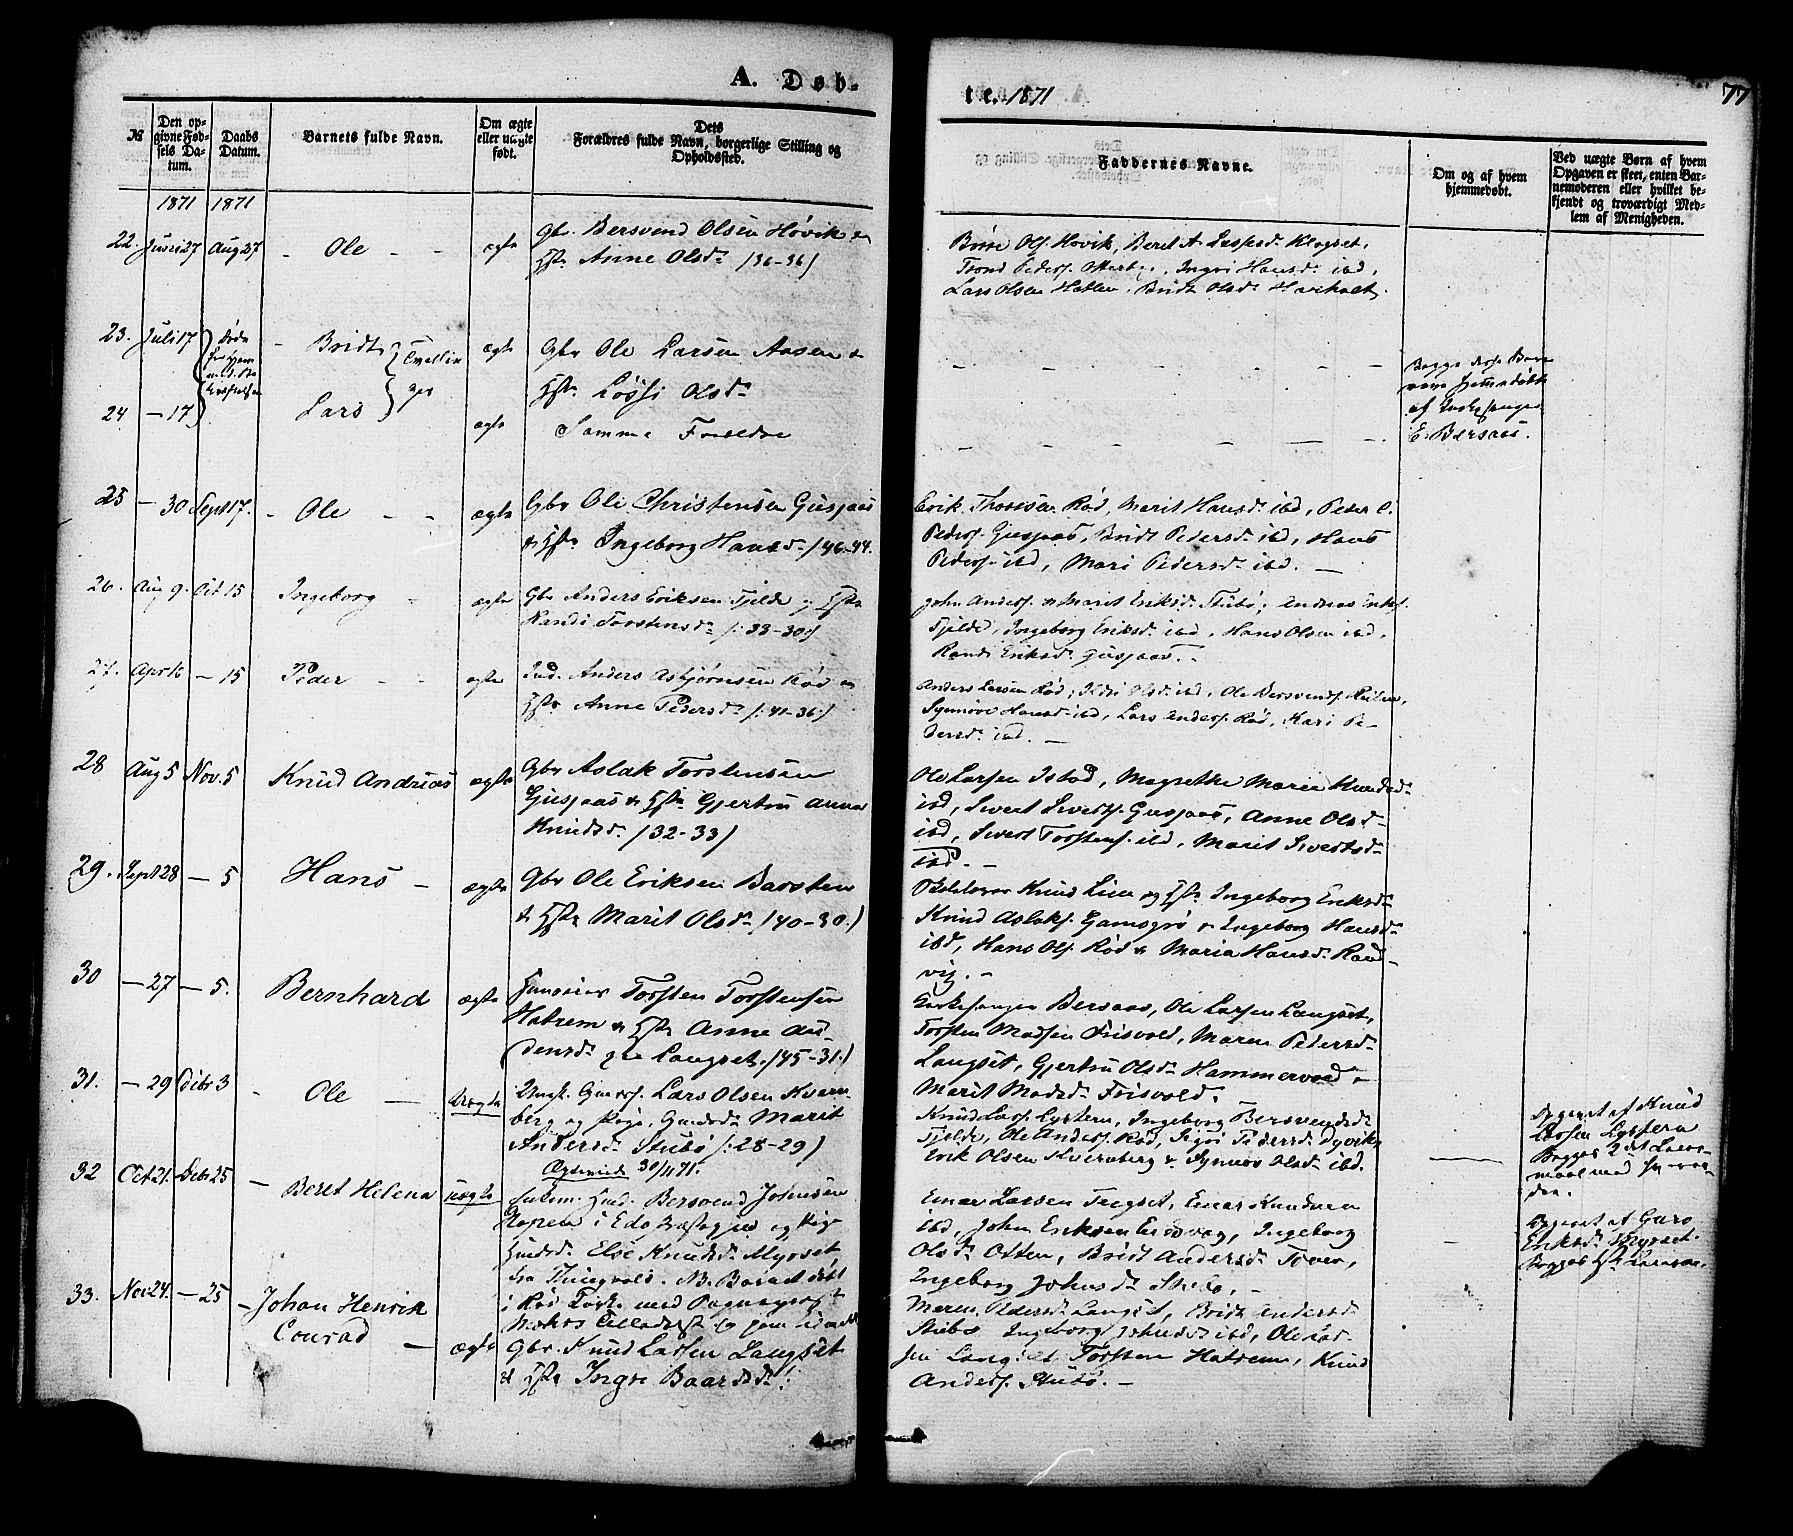 A. Døb-
te. 1871
77
№
Den op-
givne Fød-
sels Da-
tum.
Daabs
Datum.
Barnets fulde Navn.
Om ægte
eller uægte
født.
Dets
Forældres fulde Navn, borgerlige Stilling og
Opholdssted.
Faddernes Navne.
Om og af hvem
hjemmedøbt.
Ved uægte Børn af hvem
Opgaven er skeet, enten Bar-
nemoderen eller hvilket be-
kjendt og troværdigt Med-
lem af Menigheden.
1871 1871
22. Juni 27 Aug 27 - Ole - - ægte
Gbr. Bersvend Olsen Høvik &
Hstr Anne Olsdr /36-36/
Olss. Høvik, Beret A.
Trond Peders. Ingri Hansdr ibd,
Lars Olsen Hatlen, Bridt Olsdr
23. Juli 17 - Bridt ægte
Gbr Ole Larsen Aasen &
Hstr Olsdr
Begge disse Børn
hjemmedøbt
af Kirkesanger
E. Bersaas.
24 - 17 Lars ægte
Samme Forældre
25 - 30 Sept 17. - Ole - - ægte
Gbr Ole Christensen Gusjaas
& Hstr Ingeborg Hansdr /46-44.
Erik Thoresen Rød, Marit Hansdr ibd, Peter C.
Peders. Gusjaas, Bridt Pedersdr ibd, Hans
Peders. ibd, Mari Pedersdr ibd. -
26. Aug 9. Oct 15 Ingeborg - ægte
Gbr Anders Eriksen Fjelde og Hstr
Randi Torstensdr /: 33-30:/
John Anders. & Marit Eriksdr Stubø, Andreas Eriks.
Fjelde, Ingeborg Eriksdr ibd, Hans Olsen ibd,
Randi Eriksdr Gusjaas. -
27. Apr 16 - 15 Peder - - ægte
Ind. Anders Asbjørnsen Rød &
Hstr Anne Pedersdr /: 41-36:/
Anders Larsen Rød, Olsdr ibd, Ole Bersvends.
Synnøve Hansdr ibd, Lars Anders. Rød, Kari Pe-
dersdr ibd. -
28 Aug 5 Nov. 5 Knud Andreas ægte
Gbr Aslak Torstensen
Gusjaas & Hstr Gjertru Anna
Knudsdr. /32-33/
Ole Larsen Istad, Magrethe Marie Knudsdr
ibd, Sivert Siverts. Gusjaas, Anne Olsdr
ibd, Sivert Torstens. ibd, Marit Sivertsdr
ibd. -
29. Sept 28 - 5 Hans - ægte
Gbr Ole Eriksen Barsten
& Hstr Marit Olsdr /40-30./
Knud Lien og Hstr Ingeborg Eriksdr
Knud Aslaks. & Ingeborg Hansdr
ibd, Hans Ols. Rød & Maria Hansdr Rand-
vig. -
30 - 27 - 5. Bernhard ægte
Torsten Torstensen
Hatrem & Hstr Anne Au-
densdr Langset. /45-31./
Kirkesanger Bersaas, Ole Larsen Langset,
Torsten Madsen Frisvold, Maren Pedersdr
Langset, Gjertru Olsdr Hammervold &
Marit Madsdr Frisvold.
31. - 29 Decbr 3 - Ole - Uægte
Ungk. Lars Olsen Kvern-
berg og Pige, Marit
Andersdr Stubø /: 28-29/
Knud Larss. Lystern, Ingeborg Bersvendsdr
Fjelde, Ole Anders. Rød, Pedersdr
Erik Olsen Kvernberg & Synnøv Olsdr ibd.
Opgivet af Knud
Larsen
Begges 2det Leier-
maal med
32 Oct 21. Decbr 25 - Beret Helena uægte
Ægteviede 30/11 71.
Enkem. Ind. Bersvend Johnsen
i Edø Præstegjeld og Pige
Else Knudsdr Myrset
fra NB. Barnet døbt
i Rød Kirke med
Einar Larsen Einar Knudsen
ibd, John Eriksen Eidsvaag, Ingeborg
Olsdr Otten, Bridt Andersdr
Ingeborg Johnsdr Stubø. -
Opgivet af Guro
Eriksdr Myrset.
Begges
33. Nov 24. - 25 - Johan Henrik
Conrad - ægte
Gbr. Knud Larsen Langset
& Hstr Ingri Baardsdr
Maren Pedersdr Langset, Bridt Andersdr
Stubø, Ingeborg Johnsdr ibd, Ole
Torsten Hatrem, Knud
Anders. Stubø. -